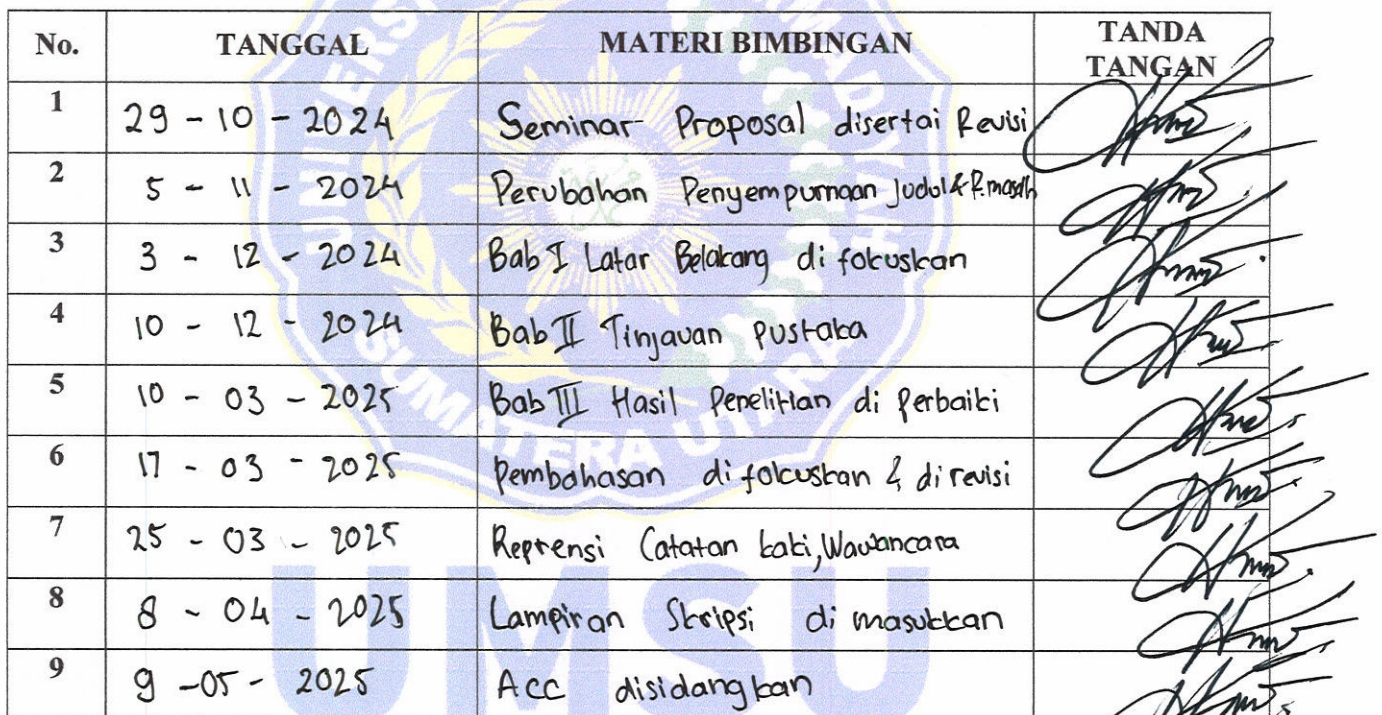 No. TANGGAL MATERI BIMBINGAN TANDA TANGAN
1 29 - 10 - 2024 Seminar Proposal disertai Revisi
2 5 - 11 - 2024 Perubahan Penyempurnaan Judul & R. masalh
3 3 - 12 - 2024 Bab I Latar Belakang di fokuskan
4 10 - 12 - 2024 Bab II Tinjauan pustaka
5 10 - 03 - 2025 Bab III Hasil Penelitian di Perbaiki
6 17 - 03 - 2025 Pembahasan di fokuskan & di revisi
7 25 - 03 - 2025 Reprensi Catatan kaki, Wawancara
8 8 - 04 - 2025 Lampiran Skripsi di masukkan
9 9 - 05 - 2025 Acc disidangkan
SUMATERA UTARA
UMSU